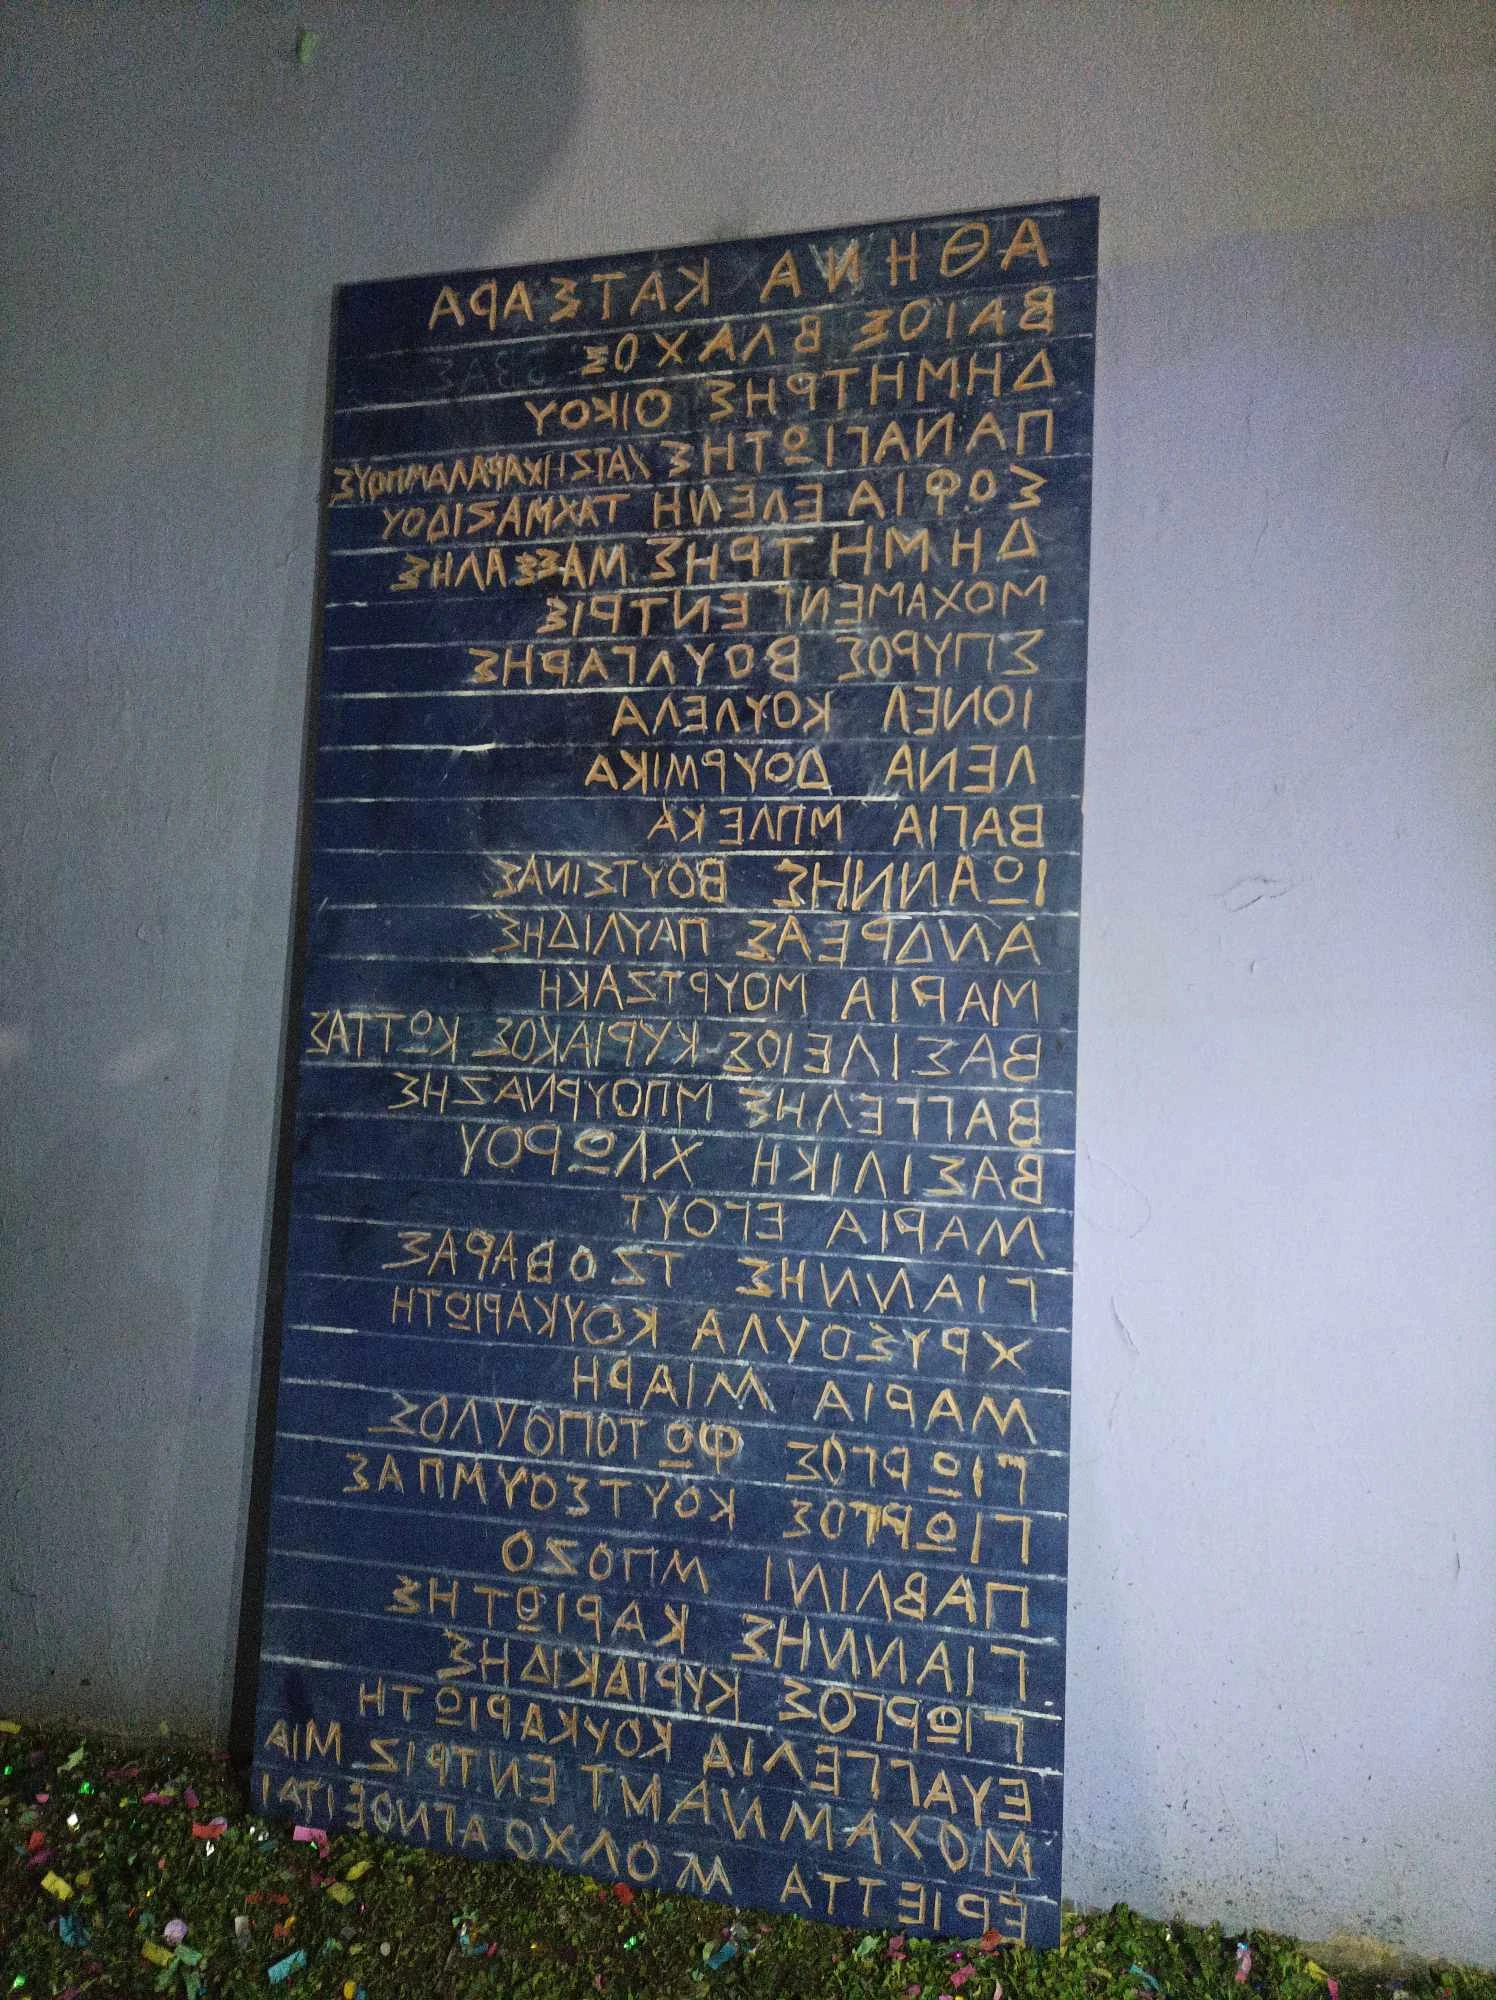 ΑΘΗΝΑ ΚΑΤΣΑΡΑ
ΒΑΙΟΣ ΒΛΑΧΟΣ
ΔΗΜΗΤΡΗΣ ΟΙΚΟΥ
ΠΑΝΑΓΙΩΤΗΣ ΧΑΤΖΗΧΑΡΑΛΑΜΠΟΥΣ
ΣΟΦΙΑ ΕΛΕΝΗ ΤΑΧΜΑΖΙΔΟΥ
ΔΗΜΗΤΡΗΣ ΜΑΣΣΑΛΗΣ
ΜΟΧΑΜΕΝΤ ΕΝΤΡΙΣ
ΣΠΥΡΟΣ ΒΟΥΛΓΑΡΗΣ
ΙΟΝΕΛ ΚΟΥΛΕΛΑ
ΛΕΝΑ ΔΟΥΡΜΙΚΑ
ΒΑΓΙΑ ΜΠΛΕΚΑ
ΙΩΑΝΝΗΣ ΒΟΥΤΣΙΝΑΣ
ΑΝΔΡΕΑΣ ΠΑΥΛΙΔΗΣ
ΜΑΡΙΑ ΜΟΥΡΤΖΑΚΗ
ΒΑΣΙΛΕΙΟΣ-ΚΥΡΙΑΚΟΣ ΚΩΤΤΑΣ
ΒΑΓΓΕΛΗΣ ΜΠΟΥΡΝΑΖΗΣ
ΒΑΣΙΛΙΚΗ ΧΛΩΡΟΥ
ΜΑΡΙΑ ΕΓΟΥΤ
ΓΙΑΝΝΗΣ ΤΖΟΒΑΡΑΣ
ΧΡΥΣΟΥΛΑ ΚΟΥΚΑΡΙΩΤΗ
ΜΑΡΙΑ ΜΙΑΡΗ
ΓΙΩΡΓΟΣ ΦΩΤΟΠΟΥΛΟΣ
ΓΙΩΡΓΟΣ ΚΟΥΤΣΟΥΜΠΑΣ
ΠΑΒΛΙΝΙ ΜΠΟΖΟ
ΓΙΑΝΝΗΣ ΚΑΡΙΩΤΗΣ
ΓΙΩΡΓΟΣ ΚΥΡΙΑΚΙΔΗΣ
ΕΥΑΓΓΕΛΙΑ ΚΟΥΚΑΡΙΩΤΗ
ΜΟΥΑΜΝΑΜΤ ΕΝΤΡΙΖ ΜΙΑ
ΕΡΙΕΤΤΑ ΜΟΛΧΟ ΑΓΝΟΕΙΤΑΙ